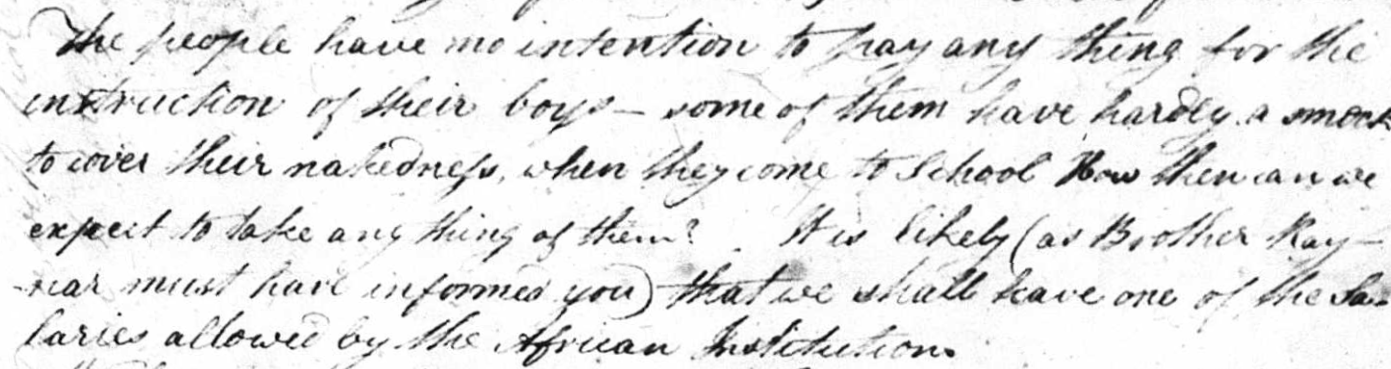 The people have no intention to pay any thing for the
instruction of their boys – some of them have hardly a smock
to cover their nakedness, when they come to School How then can we
expect to take any thing of them? It is likely (as Brother Ray-
nar must have informed you) that we shall have one of the Sa-
laries allowed by the African Institution.